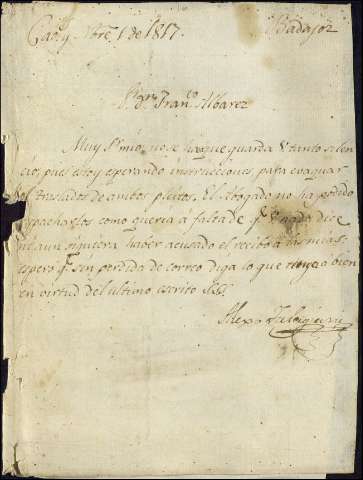 Badajoz
de 1817.
Sr. Dn. Franco. Albarez
Muy Sr. mio, no se ha que guarda V. tanto silen
cio, pues estoy esperando instrucciones para evaquar
el traslado de ambos pleitos. El Abogado no ha podido
despacharlos como queria a falta de qe. V. nada dice
ni aun siquiera haber acusado el recibo a las mias
espero qe. sin perdida de correo diga lo que bien
en virtud del ultimo escrito
Alexo